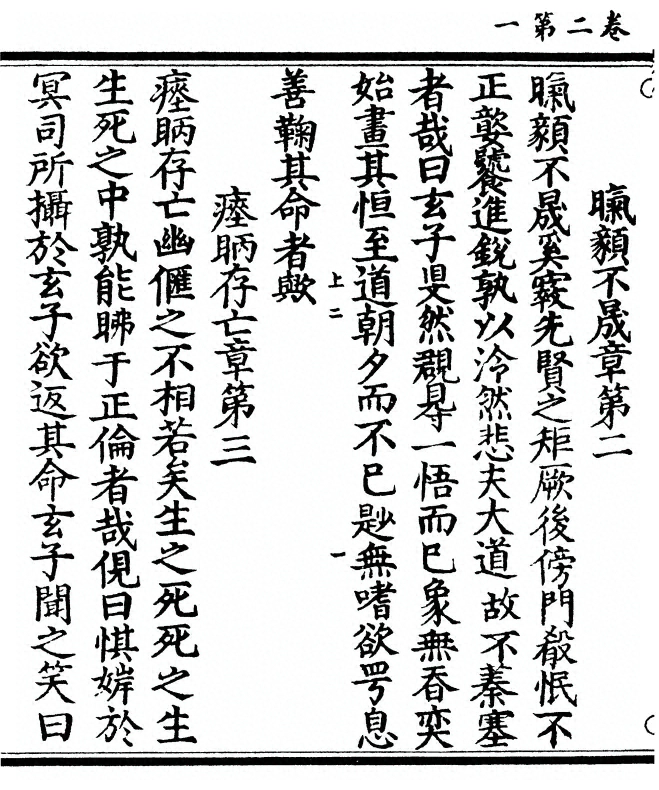 卷二第一
顥不晟章第二
顥不晟奚竅先賢之矩厥後傍門殽怋不
正饕進銳孰以泠然悲夫大道故不蓁塞
者哉曰玄子㝵一悟而已象無吞奕
始畫其恒至道朝夕而不已是無嗜欲咢息
善鞠其命者歟
上二
一
瘞眪存亡章第三
瘞眪存亡幽㒑之不相若矣生之死死之生
生死之中孰能昲于正倫者哉俔曰惧於
冥司所攝於玄子欲返其命玄子聞之笑曰